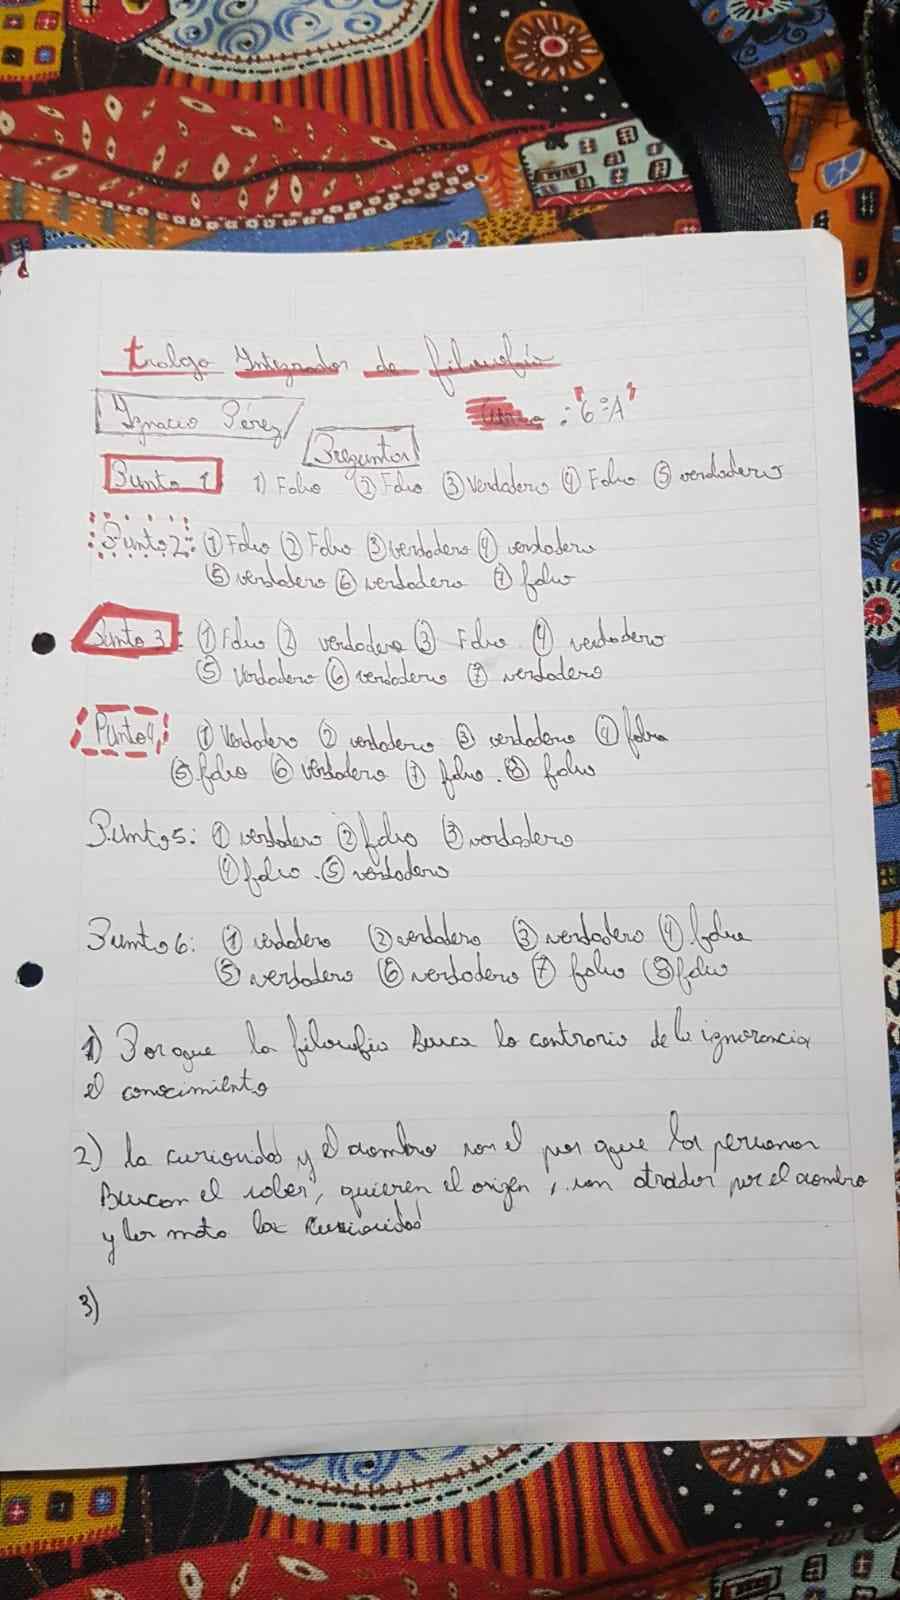 trabajo Integrador de filosofía
Ignacio Pérez
Curso : "6°A"
Preguntas
Punto 1 1) Falso ② Falso ③ Verdadero ④ Falso ⑤ verdadero
Punto 2: ① Falso ② Falso ③ verdadero ④ verdadero
⑤ verdadero ⑥ verdadero ⑦ falso
Punto 3: ① Falso ② verdadero ③ Falso ④ verdadero
⑤ Verdadero ⑥ verdadero ⑦ verdadero
Punto 4, ① Verdadero ② verdadero ③ verdadero ④ falso
⑤ falso ⑥ verdadero ⑦ falso. ⑧ falso
Punto 5: ① verdadero ② falso ③ verdadero
④ falso. ⑤ verdadero
Punto 6: ① verdadero ② verdadero ③ verdadero ④ falso
⑤ verdadero ⑥ verdadero ⑦ falso ⑧ falso
1) Porque la filosofia Busca lo contrario de la ignorancia
el conocimiento
2) la curiosidad y el asombro son el por que las personas
Buscan el saber, quieren el origen, son atrados por el asombro
y los mata la curiosidad
3)